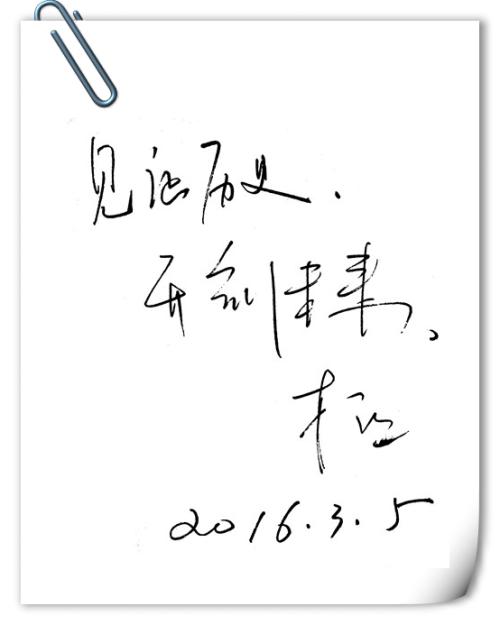 见证历史.
开创未来。
2016.3.5